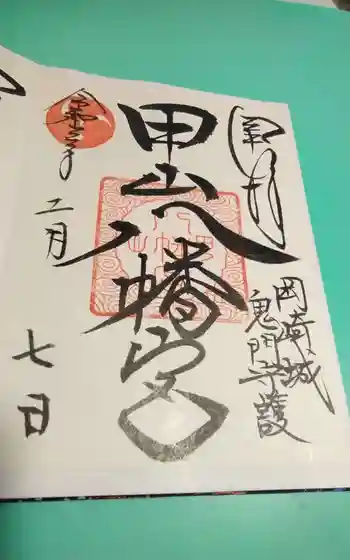 奉拝
岡崎城
鬼門守護
甲山八幡宮
二月
七日